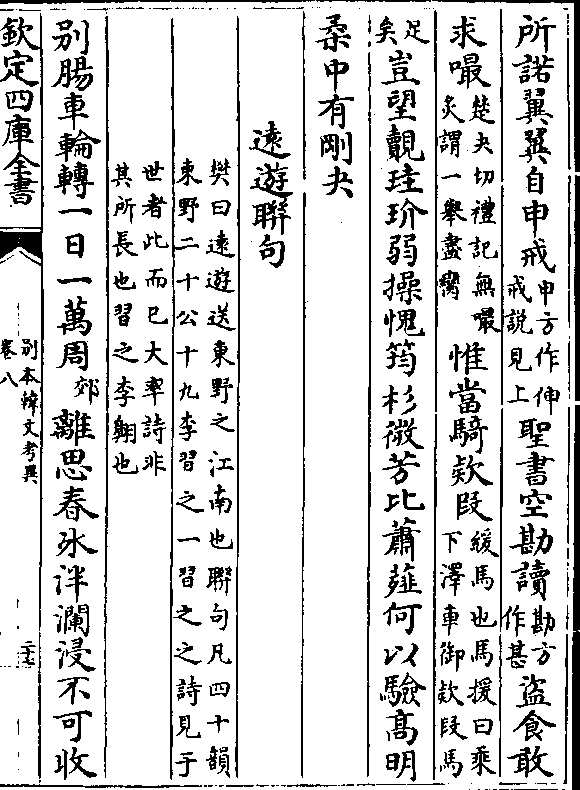 所諾翼翼自申戒申方作伸戒說見上聖書空勘讀勘方作甚盜食敢
求嘬楚夬切禮記無嘬炙謂一舉盡臠惟當騎欵段緩馬也馬援曰乘下澤車御欵段馬
足矣豈望覿珪玠弱操愧筠杉微芳比蕭䪥何以驗髙明
柔中有剛夬
逺遊聯句
樊曰逺遊送東野之江南也聯句凡四十韻
東野二十公十九李習之一習之之詩見于
世者此而已大率詩非
其所長也習之李翺也
别膓車輪轉一日一萬周郊離思春氷泮瀾浸不可收
欽定四庫全書
别本韓文考異
卷八
二十七